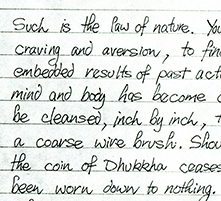 Such is the law of nature. You
craving and aversion, to fin
embedded results of past acti
mind and body has become
be cleansed, inch by inch, t
a coarse wire brush. Shou
the coin of Dhukkha ceases
been worn down to nothing.